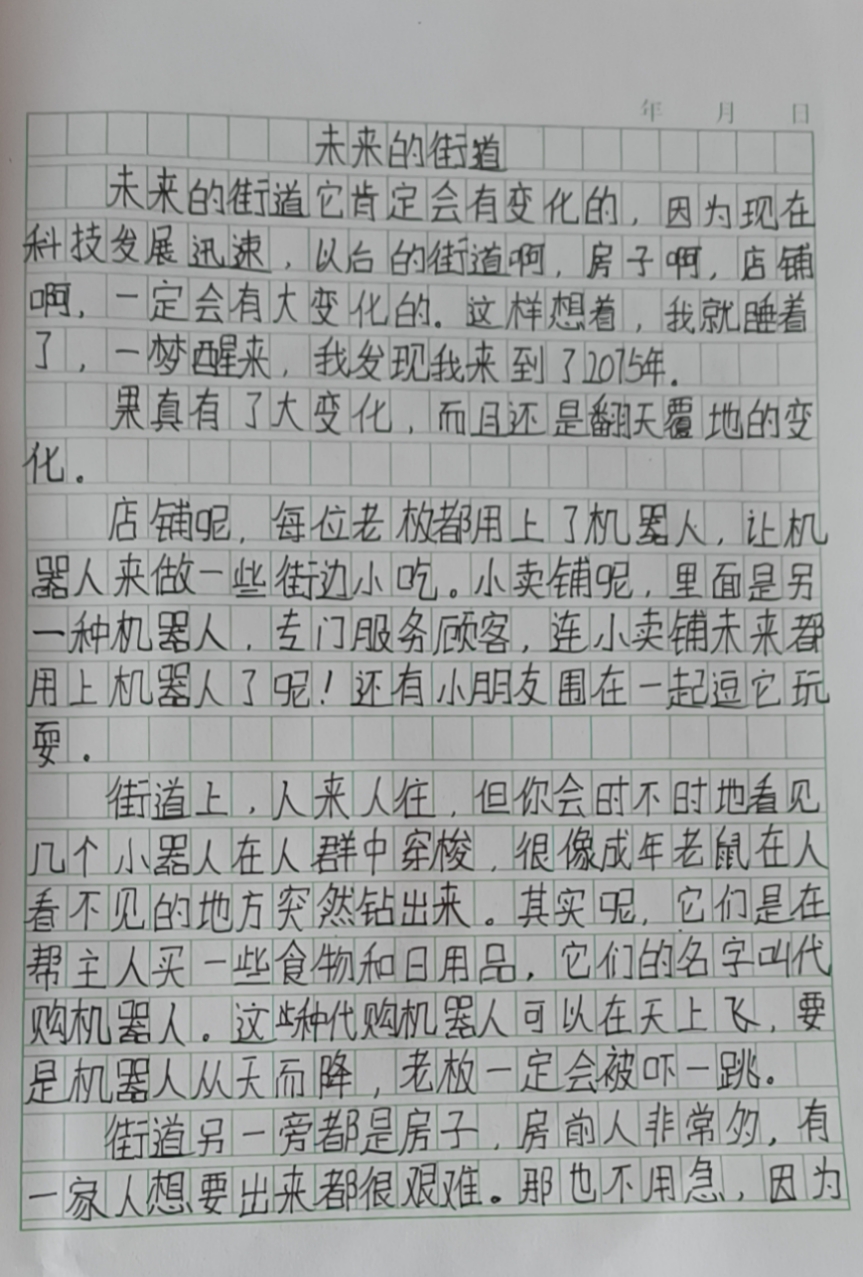 年 月 日
未来的街道
未来的街道它肯定会有变化的，因为现在
科技发展迅速，以后的街道啊，房子啊，店铺
啊，一定会有大变化的。这样想着，我就睡着
了，一梦醒来，我发现我来到了2075年。
果真有了大变化，而且还是翻天覆地的变
化。
店铺呢，每位老板都用上了机器人，让机
器人来做一些街边小吃。小卖铺呢，里面是另
一种机器人，专门服务顾客，连小卖铺未来都
用上机器人了呢！还有小朋友围在一起逗它玩
耍。
街道上，人来人往，但你会时不时地看见
几个小器人在人群中穿梭，很像成年老鼠在人
看不见的地方突然钻出来。其实呢，它们是在
帮主人买一些食物和日用品，它们的名字叫代
购机器人。这些种代购机器人可以在天上飞，要
是机器人从天而降，老板一定会被吓一跳。
街道另一旁都是房子，房前人非常多，有
一家人想要出来都很艰难。那也不用急，因为